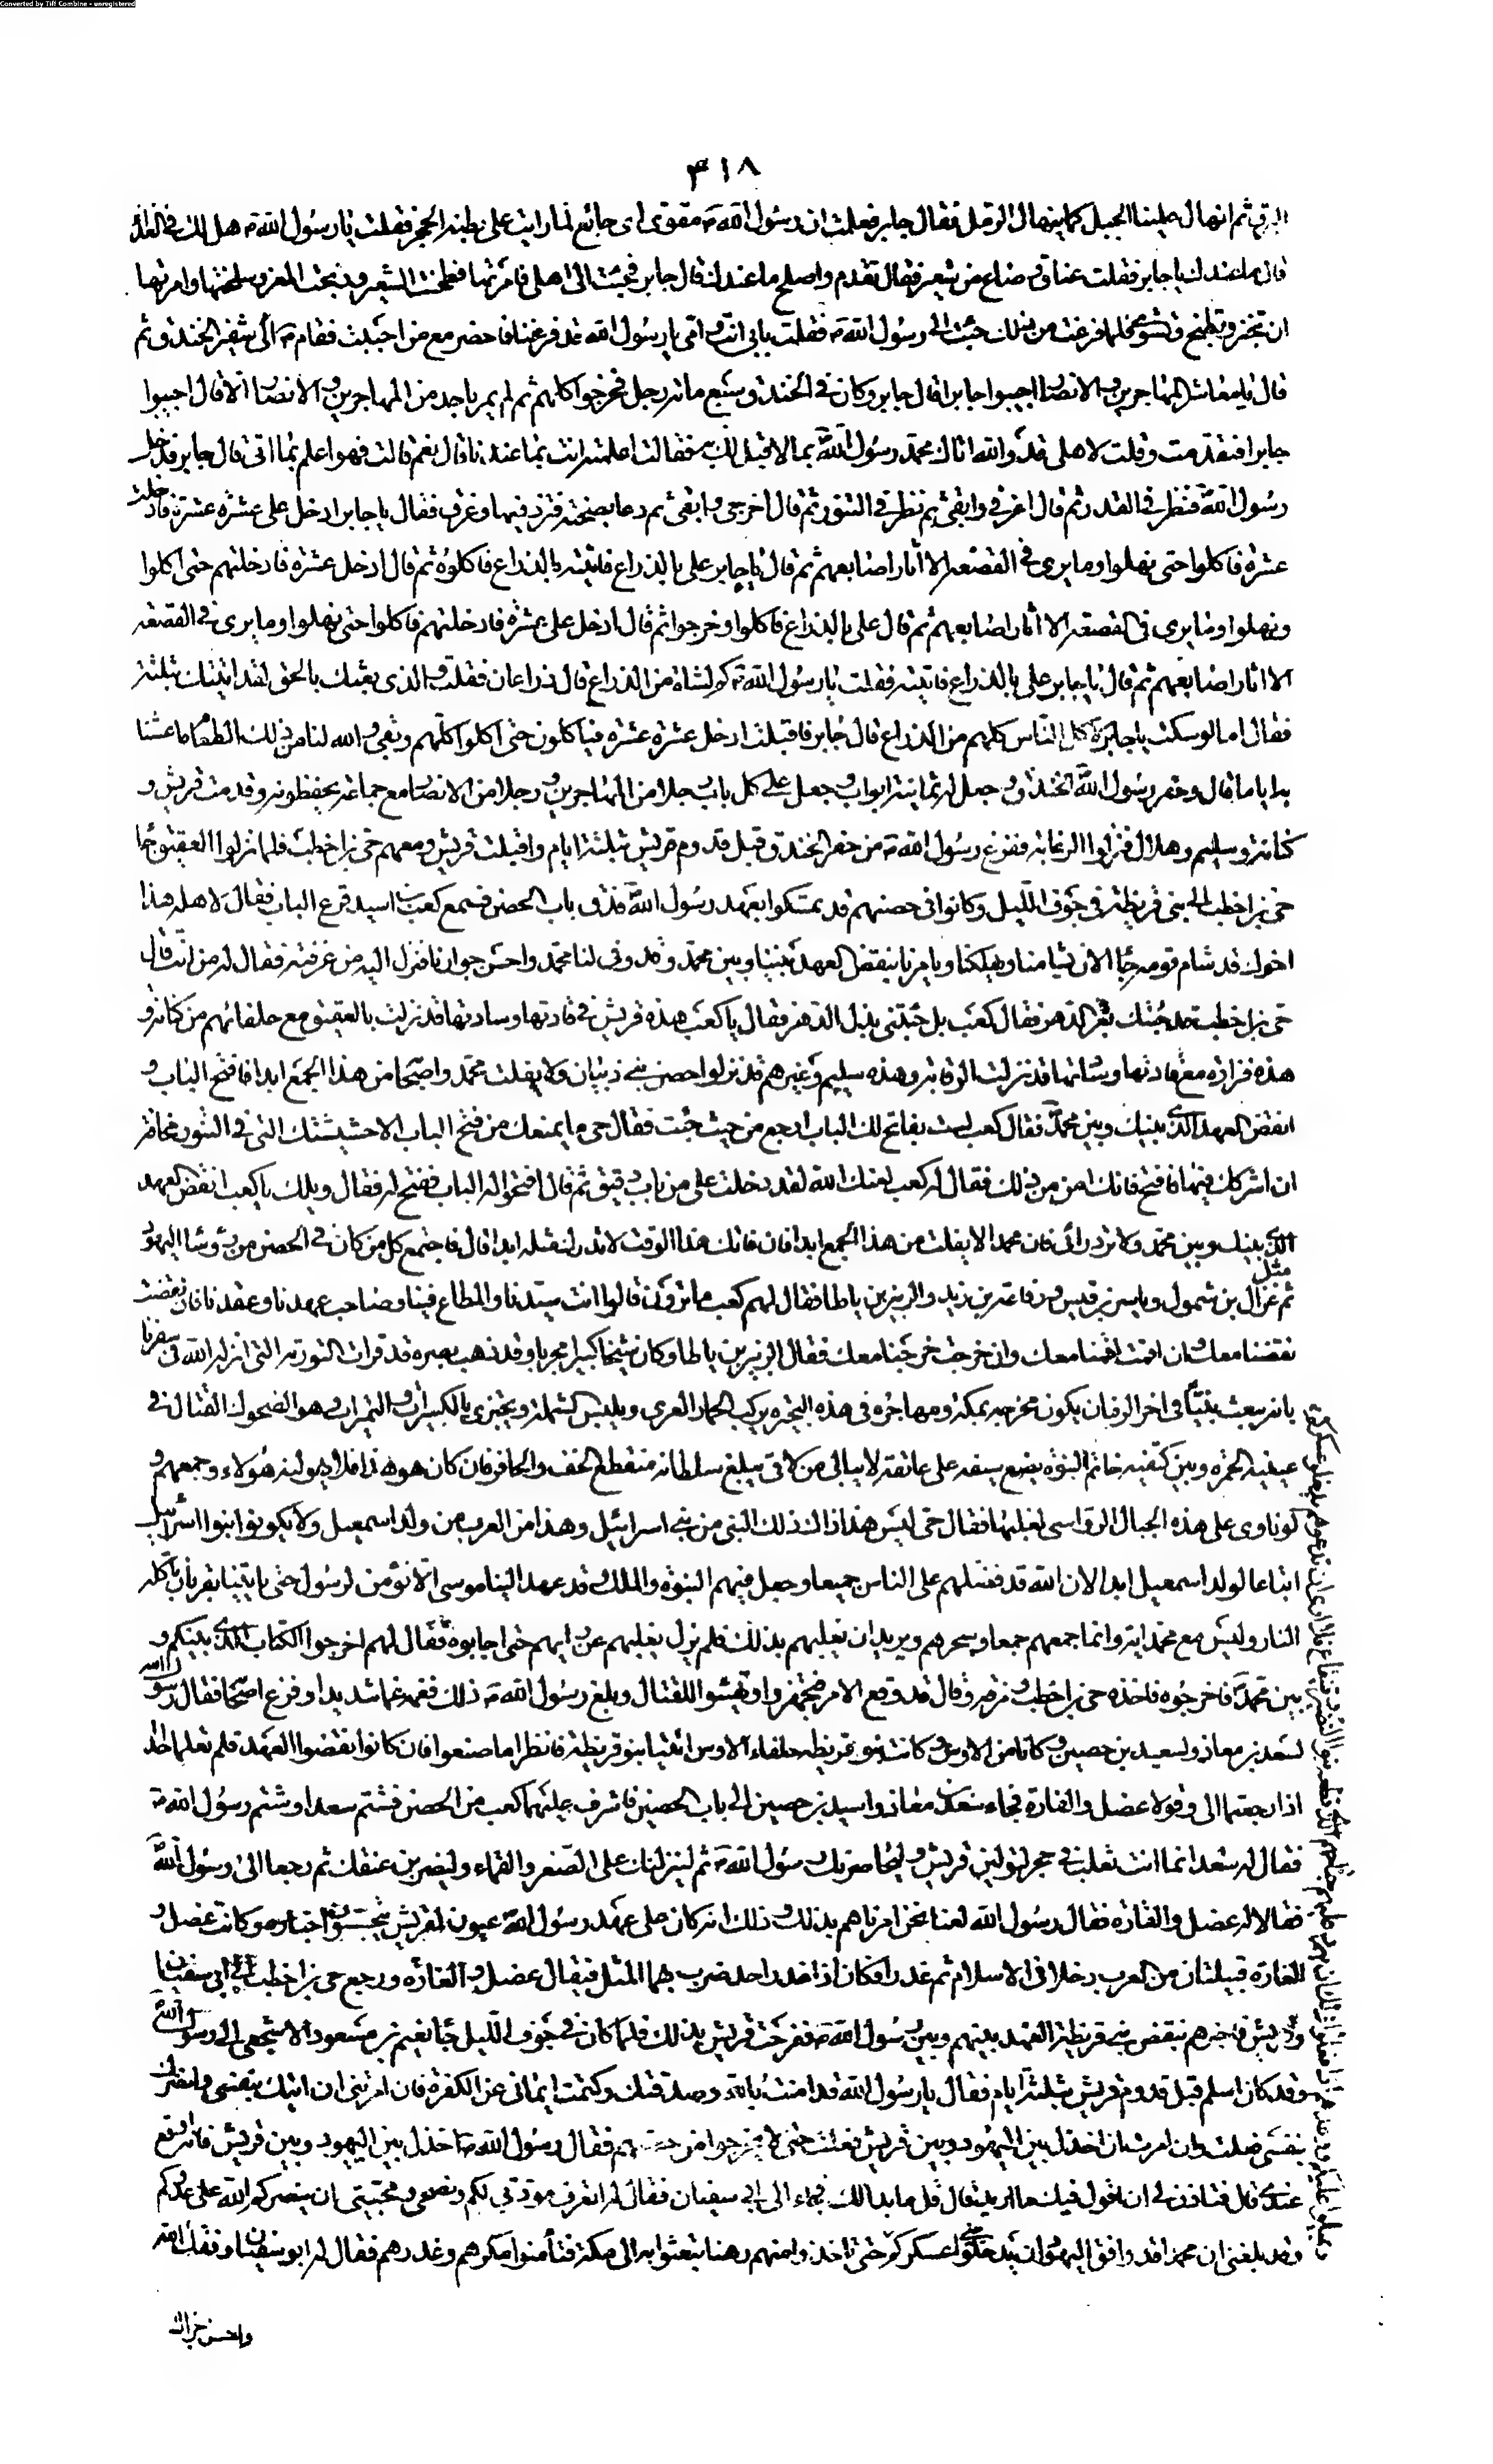 Converted by Tiff Combine - unregistered
٣١٨
البرق ثم انهال علينا الجبل كما ينهال الرمل فقال جابر فعلمت ان رسول الله ص مقوى اى جائع لما رايت على بطنه الحجر فقلت يا رسول الله ص هل لك في الغذآء
قال ما عندك يا جابر فقلت عناق و صاع من شعير فقال تقدم واصلح ما عندك قال جابر فجئت الى اهلى فامرتها فطحنت الشعير و ذبحت العنز و سلختها وامرتها
ان تخبز و تطبخ و تشوى فلما فرغت من ذلك جئت الى رسول الله ص فقلت بابى انت وامى يا رسول الله قد فرغنا فاحضر مع من احببت فقام ص الى شفير الخندق ثم
قال يا معاشر المهاجرين والانصار اجيبوا جابرا قال جابر وكان في الخندق سبع مائة رجل فخرجوا كلهم ثم لم يمر باحد من المهاجرين والانصار الا قال اجيبوا
جابرا فتقدمت وقلت لاهلى قد والله اتاك محمد رسول الله بما لا قبل لك به فقالت اعلمته انت بما عندنا قال نعم قالت فهو اعلم بما اتى قال جابر فدخل
رسول الله فنظر في القدر ثم قال اغرفى وابقى ثم نظر في التنور ثم قال اخرجى وابقى ثم دعا بصحفة فثرد فيها وغرف فقال يا جابر ادخل على عشرة عشرة فادخلت
عشرة فاكلوا حتى نهلوا وما يرى في القصعة الا آثار اصابعهم ثم قال يا جابر على بالذراع فاتيته بالذراع فاكلوه ثم قال ادخل عشرة فادخلتهم حتى اكلوا
ونهلوا وما يرى في القصعة الا آثار اصابعهم ثم قال على بالذراع فاكلوا وخرجوا ثم قال ادخل على عشرة فادخلتهم فاكلوا حتى نهلوا وما يرى في القصعة
الا آثار اصابعهم ثم قال يا جابر على بالذراع فاتيته فقلت يا رسول الله ص كم للشاة من الذراع قال ذراعان فقلت والذى بعثك بالحق لقد اتيتك بثلثة
فقال اما لو سكت يا جابر لاكل الناس كلهم من الذراع قال جابر فاقبلت ادخل عشرة عشرة فياكلون حتى اكلوا كلهم وبقى والله لنا من ذلك الطعام ما عشنا
به اياما قال وحفر رسول الله الخندق وجعل له ثمانية ابواب وجعل على كل باب رجلا من المهاجرين و رجلا من الانصار مع جماعة يحفظونه وقدمت قريش و
كنانة وسليم وهلال فنزلوا الرغابة ففرغ رسول الله ص من حفر الخندق قبل قدوم قريش بثلثة ايام واقبلت قريش ومعهم حى بن اخطب فلما نزلوا العقيق جاء
حى بن اخطب الى بنى قريظة في جوف الليل وكانوا في حصنهم قد تمسكوا بعهد رسول الله فدق باب الحصن فسمع كعب بن اسيد قرع الباب فقال لاهله هذا
اخوك قد شام قومه جاء الان يشامنا ويهلكنا ويامرنا بنقض العهد بيننا وبين محمد وقد وفى لنا محمد واحسن جوارنا فنزل اليه من غرفته فقال له من انت قال
حى بن اخطب قد جئتك بعز الدهر فقال كعب بل جئتنى بذل الدهر فقال يا كعب هذه قريش في قادتها وسادتها قد نزلت بالعقيق مع حلفائهم من كنانة و
هذه فزارة مع قادتها وساداتها قد نزلت الرغابة وهذه سليم وغيرهم قد نزلوا حصن بنى ذبيان ولا يفلت محمد واصحابه من هذا الجمع ابدا فافتح الباب و
انقض العهد الذى بينك وبين محمد فقال كعب لست بفاتح لك الباب ارجع من حيث جئت فقال حى ما يمنعك من فتح الباب الا حشيشتك التى في التنور مخافة
ان اشركك فيها فافتح فانك امن من ذلك فقال له كعب لعنك الله لقد دخلت على من باب دقيق ثم قال افتحوا له الباب ففتح له فقال ويلك يا كعب انقض العهد
الذى بينك وبين محمد ولا ترد رائى فان محمدا لا يفلت من هذا الجمع ابدا فان فاتك هذا الوقت لا تدرك مثله ابدا قال فاجتمع كل من كان في الحصن من رؤساء اليهود
مثل
ثم غزال بن شمول و ياسر بن قيس ورفاعة بن زيد والزبير بن ياطا فقال لهم كعب ما ترون قالوا انت سيدنا والمطاع فينا وصاحب عهدنا وعقدنا فان نقضت
نقضنا معك وان اقمت اقمنا معك وان خرجت خرجنا معك فقال الزبير بن ياطا وكان شيخا كبيرا مجربا وقد ذهب بصره قد قرات التورية التى انزلها الله في سفرنا
بانه يبعث نبيا في اخر الزمان يكون مخرجه بمكة ومهاجره في هذه البحيرة يركب الحمار العرى ويلبس الشملة ويجتزى بالكسيرات والتميرات وهو الضحوك القتال في
عينيه الحمرة وبين كتفيه خاتم النبوة يضع سيفه على عاتقه لا يبالى من لاقى يبلغ سلطانه منقطع الخف والحافر فان كان هو هذا فلا يهولنه هؤلاء وجمعهم و
لو ناوى على هذه الجبال الرواسى لغلبها فقال حى ليس هذا ذاك ذلك النبى من بنى اسرائيل وهذا من العرب من ولد اسمعيل ولا يكونوا بنو اسرائيل
اتباعا لولد اسمعيل ابدا لان الله قد فضلهم على الناس جميعا وجعل فيهم النبوة والملك وقد عهد الينا موسى الا نؤمن لرسول حتى ياتينا بقربان تاكله
النار وليس مع محمد اية وانما جمعهم جمعا وسحرهم ويريد ان يغلبهم بذلك فلم يزل يقلبهم عن رايهم حتى اجابوه فقال لهم اخرجوا الكتاب الذى بينكم و
بين محمد فاخرجوه فاخذه حى بن اخطب ومزقه وقال قد وقع الامر فتجهزوا وتهيئوا للقتال وبلغ رسول الله ص ذلك فغمه غما شديدا وفزع اصحابه فقال رسول الله
لسعد بن معاذ واسيد بن حصين وكانا من الاوس وكانت بنو قريظة حلفاء الاوس ائتيا بنو قريظة فانظرا ما صنعوا فان كانوا نقضوا العهد فلم تعلما احدا
اذا رجعتما الى وقولا عضل والقارة فجاء سعد بن معاذ واسيد بن حصين الى باب الحصين فاشرف عليهما كعب من الحصن فشتم سعدا وشتم رسول الله ص
فقال له سعد انما انت ثعلب في جحر لتولين قريش وليحاصرنك رسول الله ص ثم لينزلنك على الصغر والقماء وليضربن عنقك ثم رجعا الى رسول الله
فقالا له عضل والقارة فقال رسول الله لعنا نحن امرناهم بذلك وذلك انه كان على عهد رسول الله عيون لقريش يتجسسون اخباره وكانت عضل و
القارة قبيلتان من العرب دخلا في الاسلام ثم غدرا فكان اذا غدر احد ضرب بهما المثل فيقال عضل والقارة ورجع حى بن اخطب الى ابى سفيان
وقريش فاخبرهم بنقض بنى قريظة العهد بينهم وبين رسول الله ص ففرحت قريش بذلك فلما كان في جوف الليل جاء نعيم بن مسعود الاشجعى الى رسول الله
وقد كان اسلم قبل قدوم قريش بثلثة ايام فقال يا رسول الله قد امنت بالله وصدقتك وكتمت ايمانى عن الكفرة فان امرتنى ان اتيك بنفسى وانصرك
بنفسى فعلت وان امرت ان اخذل بين اليهود وبين قريش فعلت حتى لا يخرجوا من حصنهم فقال رسول الله ص خذل بين اليهود وبين قريش فانه اوقع
عندى قال فتاذن لى ان اقول فيك ما اريد قال قل ما بدا لك فجاء الى ابى سفيان فقال له تعرف مودتى لكم ونصحى ومحبتى ان ينصركم الله على عدوكم
وقد بلغنى ان محمدا قد وافق اليهود ان يدخلوا عسكركم حتى تاخذوا منهم رهنا يبعثوا به الى مكة فتأمنوا مكرهم وغدرهم فقال له ابو سفيان وفقك الله
واحسن جزاك